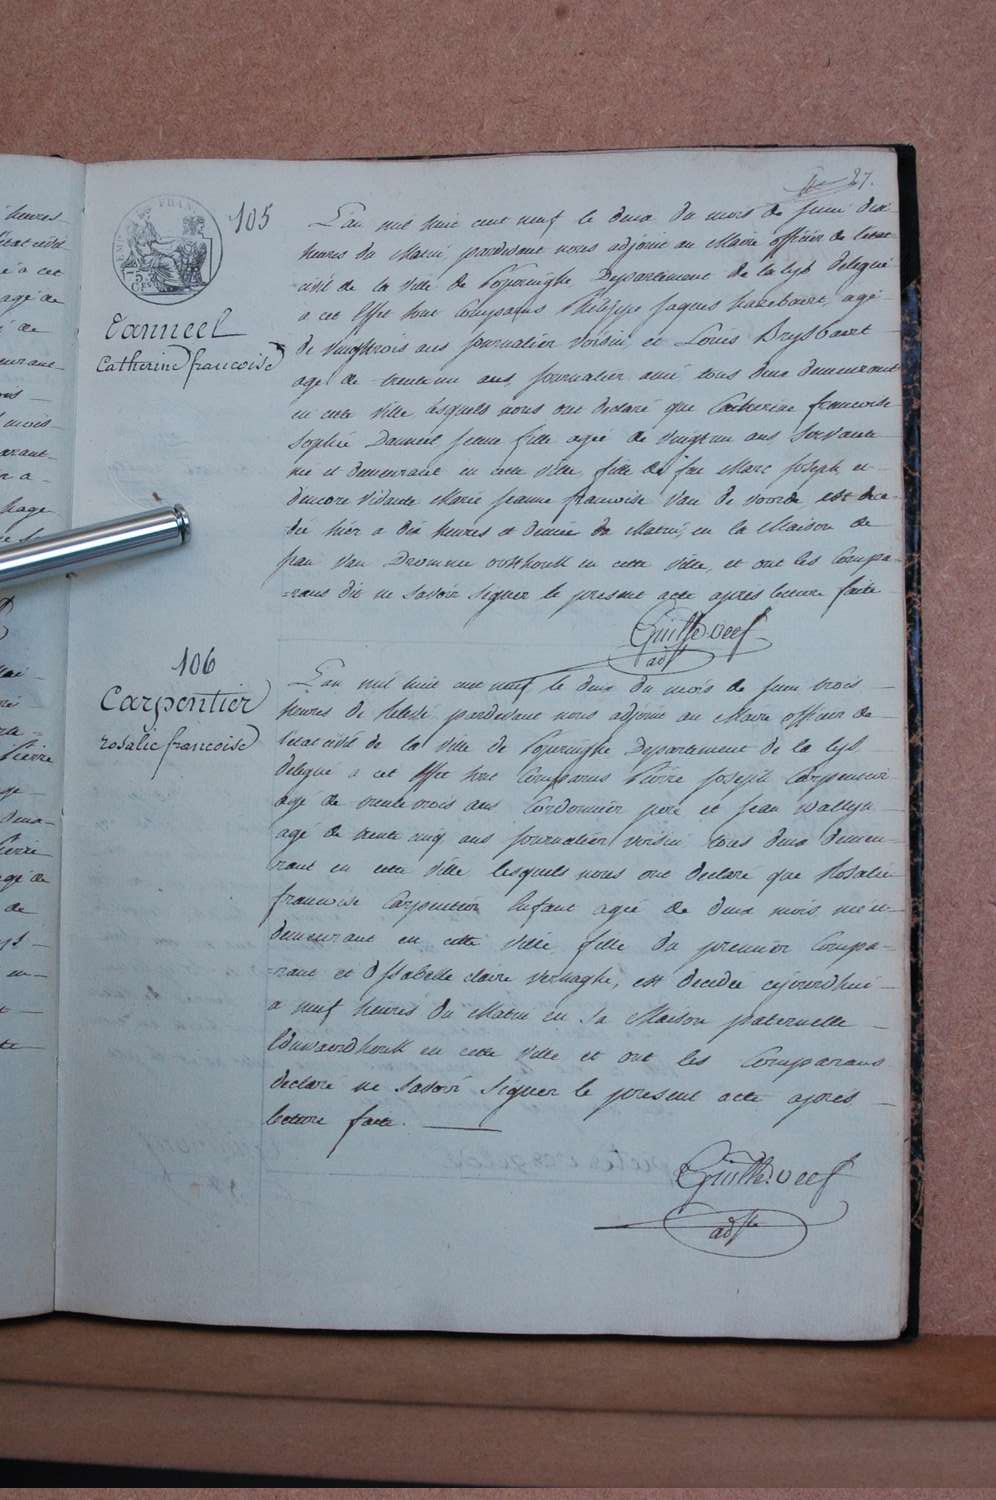 27.
105
Danneel
Catherine francoise
L'an mil huit cent neuf le deux du mois de juin dix
heures du Matin, pardevant nous adjoint au Maire officier de l'etat
civil de la ville de Poperinghe Departement de la Lys delegué
a cet Effet sont Comparus Philippe Jaques agé
de vingttrois ans journalier voisin, et Louis Brysbaert
agé de trente un ans, journalier ami tous deux demeurant
en cette ville, lesquels nous ont declaré que Catherine francoise
Sophie Danneel jeune fille agée de vingt un ans Servante
née et demeurant en cette ville, fille de feu Marc Joseph et
d'encore vivante Marie Jeanne francoise Van de voorde, est dece-
dée hier a dix heures et demie du Matin, en la Maison de
jean Van Dromme oosthoek en cette ville, et ont les Compa-
=rans dit ne Savoir Signer le present acte apres lecture faite
adjt
106
Carpentier
rosalie francoise
L'an mil huit cent neuf le deux du mois de juin trois
heures de relevée, pardevant nous adjoint au Maire officier de
l'etat civil de la ville de Poperinghe Departement de la Lys
delegué a cet Effet sont Comparus Pierre Joseph Carpentier
agé de trente trois ans Cordonnier pere et jean Wallyn
agé de trente cinq ans journalier voisin tous deux demeu-
rant en cette ville lesquels nous ont declaré que Rosalie
francoise Carpentier Enfant agée de deux mois née et
demeurant en cette ville, fille du premier Compa-
=rant et D'Isabelle claire Verhaghe, est decedée cejourdhui
a neuf heures du Matin en Sa Maison paternelle
en cette ville et ont les Comparans
declaré ne Savoir Signer le present acte après
lecture faite.
adjt